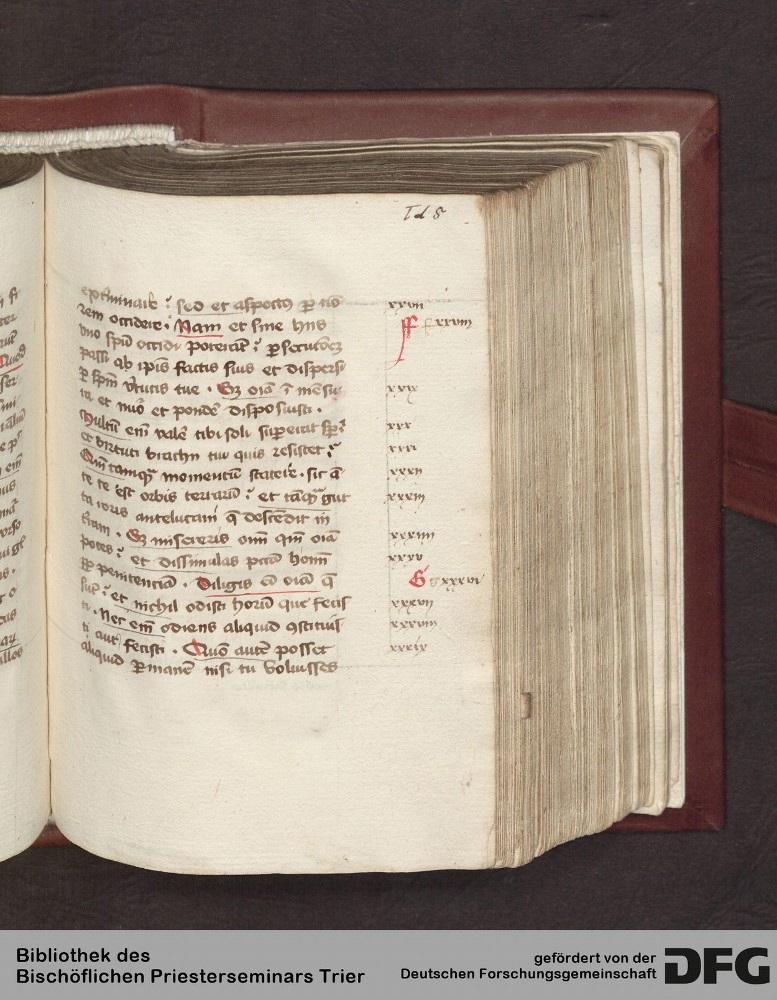 extminare : sed et aspectus p tio
rem occidere . Nam et sine hiis
vno spu occidi poterant : psecutoez
passi ab ipis factis suis et dispersi
p spm vtutis tue . Sz oia i mesu
ra et nuo et ponde disposuisti .
Multu em vale tibi soli supat sp :
et virtuti brachii tui quis resistet :
Qm tamq momentu statere . sic a
te te est orbis terraru : et taq gut
ta roris antelucani q descedit in
tram . Sz misereris omi qm oia
potes : et dissimulas pcta homi
pp penitentia . Diligis em oia q
sut : et nichil odisti horu que fecis
ti . Nec em odiens aliquid ostituis
ti aut fecisti . Quo aute posset
aliquid pmane nisi tu voluisses
xxvii
ff xxviii
xxix
xxx
xxxi
xxxii
xxxiii
xxxiiii
xxxv
G g xxxvi
xxxvii
xxxviii
xxxix
Quod
Bibliothek des
Bischöflichen Priesterseminars Trier
gefördert von der
Deutschen Forschungsgemeinschaft
DFG